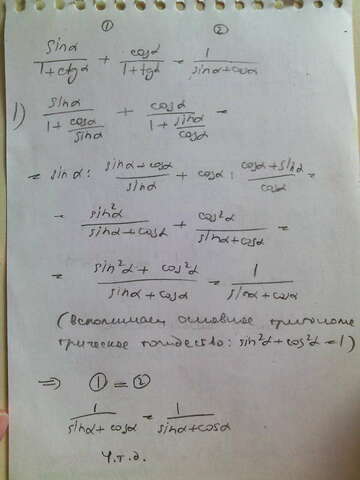 ① ②
sinα/(1+ctgα) + cosα/(1+tgα) = 1/(sinα+cosα)
1) sinα/(1+cosα/sinα) + cosα/(1+sinα/cosα) =
= sinα : (sinα+cosα)/sinα + cosα : (cosα+sinα)/cosα =
= sin²α/(sinα+cosα) + cos²α/(sinα+cosα) =
= (sin²α + cos²α)/(sinα+cosα) = 1/(sinα+cosα)
(Вспоминаем основное тригономе
трическое тождество: sin²α+cos²α=1)
⇒ ① = ②
1/(sinα+cosα) = 1/(sinα+cosα)
ч.т.д.